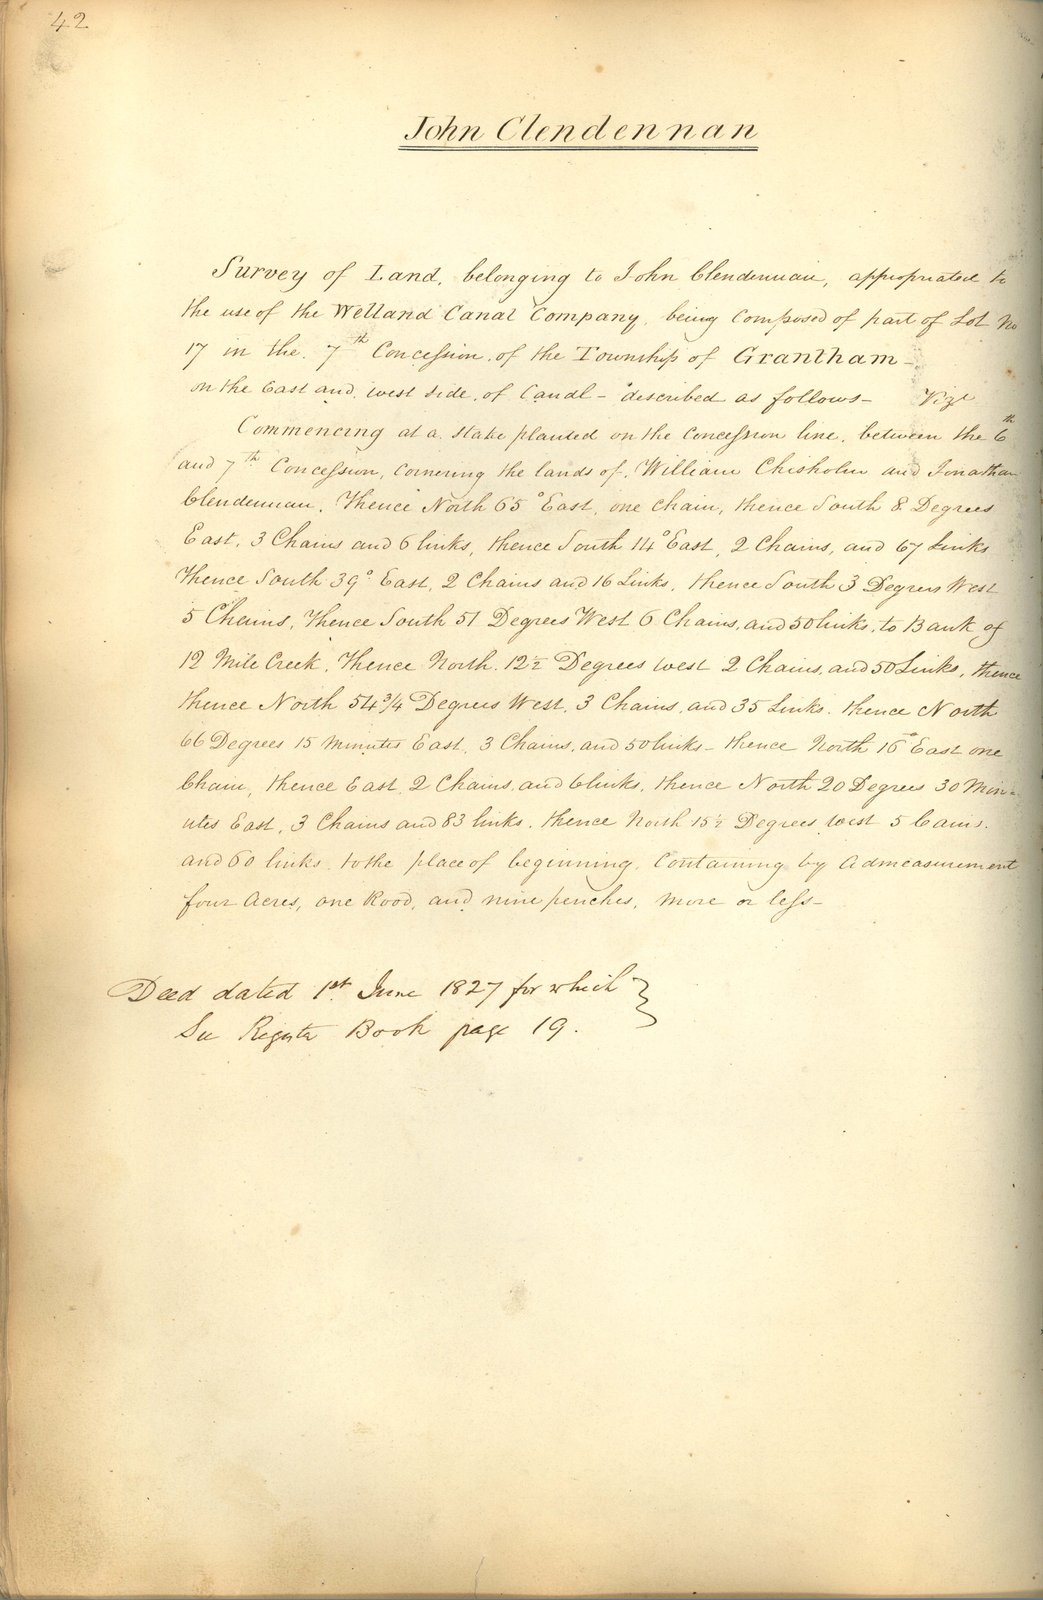 42
John Clendennan
Survey of Land, belonging to John Clendennan, appropriated to
the use of the Welland Canal Company, being Composed of part of Lot No
17 in the 7th Concession of the Township of Grantham –
on the East and west side of Canal – described as follows – Vizt
Commencing at a stake planted on the Concession line, between the 6th
and 7th Concession, cornering the lands of William Chisholm and Jonathan
Clendennan, Thence North 65° East, one chain, thence South 8 Degrees
East, 3 Chains and 6 links, thence South 14° East, 2 Chains, and 67 Links
Thence South 39° East, 2 Chains and 16 Links, thence South 3 Degrees West
5 Chains, Thence South 51 Degrees West 6 Chains, and 50 links, to Bank of
12 Mile Creek, Thence North 12½ Degrees west 2 Chains, and 50 Links, thence
thence North 54 3/4 Degrees West, 3 Chains, and 35 Links. thence North
66 Degrees 15 minutes East, 3 Chains, and 50 links – thence North 16° East one
Chain, thence East 2 Chains, and 6 links, thence North 20 Degrees 30 Min=
utes East, 3 Chains and 83 links. thence North 15½ Degrees west 5 Cains.
and 60 links to the place of beginning, Containing by Admeasurement
four acres, one Rood, and nine perches, more or less –
Deed dated 1st June 1827 for which }
See Register Book page 19.